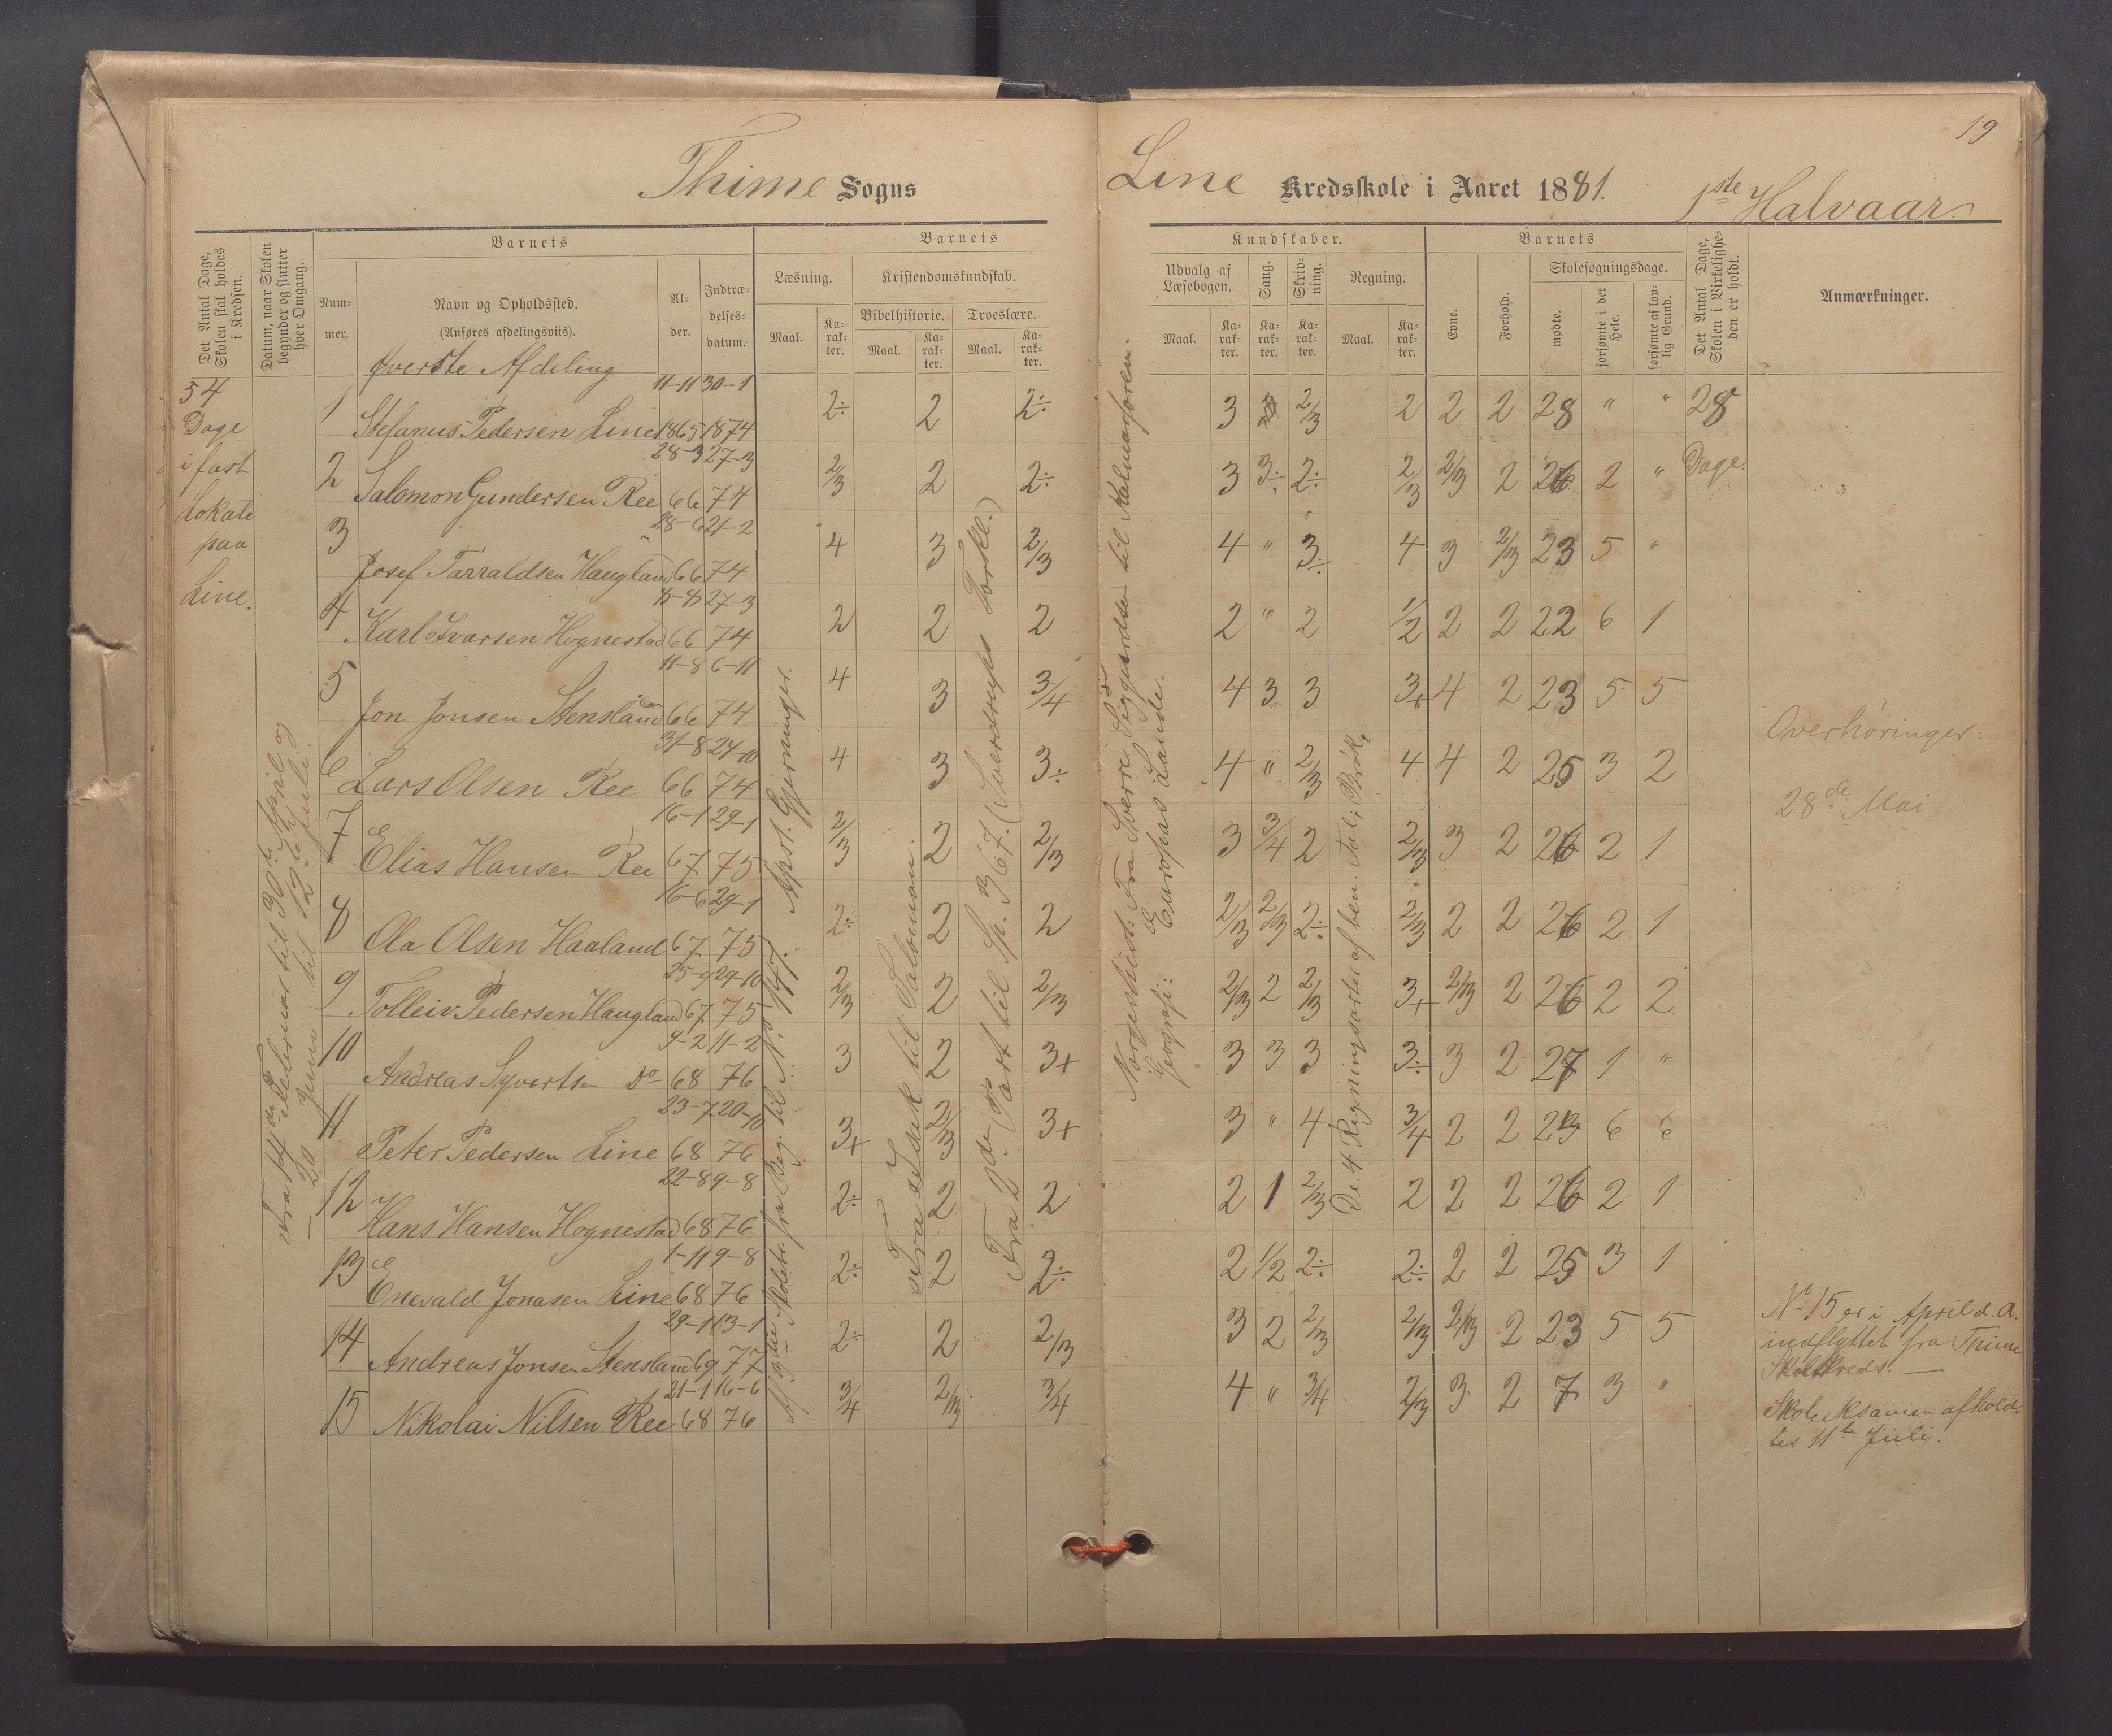 19
Thime Sogns
Line Kredsskole i Aaret 1881. 1ste Halvaar.
Det Antal Dage, Skolen skal holdes i Kredsen.
Datum, naar Skolen begynder og slutter hver Omgang.
Barnets
Nummer.
Navn og Opholdssted.
(Anføres afdelingsviis).
Alder.
Indtrædelsesdatum.
Barnets
Læsning.
Kristendomskundskab.
Bibelhistorie.
Troeslære.
Maal.
Karakter.
Maal.
Karakter.
Maal.
Karakter.
Kundskaber.
Udvalg af Læsebogen.
Sang.
Skrivning.
Regning.
Maal.
Karakter.
Karakter.
Karakter.
Maal.
Karakter.
Barnets
Evne.
Forhold.
Skolesøgningsdage.
mødte.
forsømte i det Hele.
forsømte af lovlig Grund.
Det Antal Dage, Skolen i Virkeligheden er holdt.
Anmærkninger.
54
Dage
i fast
Lokale
paa
Line.
Fra 14de Februar til 30te April og
20 Juni til 12te Juli.
Øverste Afdeling
1 Stefanus Pedersen Line 11-11 1865 30-1 1874 2÷ 2 2÷ 3 2/3 2 2 2 28 " " 28
2 Salomon Gundersen Ree 28-3 66 27-3 74 2/3 2 2÷ 3 3÷ 2÷ 2/3 2/3 2 26 2 " Dage.
3 Josef Tarraldsen Haugland 28-6 66 21-2 74 4 3 2/3 4 " 3÷ 4 3 2/3 23 5 "
4 Karl Ivarsen Hognestad 66 27-3 74 2 2 2 2 " 2 1/2 2 2 22 6 1
5 Jon Jonsen Stensland 11-8 66 6-11 74 4 3 3/4 4 3 3 3+ 4 2 23 5 5
6 Lars Olsen Ree 31-8 66 24-10 74 4 3 3÷ 4 " 2/3 4 4 2 25 3 2
7 Elias Hansen Ree 16-1 67 29-1 75 2/3 2 2/3 3 3/4 2 2/3 3 2 26 2 1
8 Ola Olsen Haaland 16-6 67 29-1 75 2÷ 2 2 2/3 2/3 2÷ 2/3 2 2 26 2 1
9 Tolleiv Pedersen Haugland 25-9 67 29-10 75 2/3 2 2/3 2/3 2 2/3 3+ 2/3 2 26 2 2
10 Andreas Syvertsen Do 9-2 68 11-2 76 3 2 3+ 3 3 3 3÷ 3 2 27 1 "
11 Peter Pedersen Line 23-7 68 20-10 76 3+ 2/3 3+ 3 " 4 3/4 2 2 23 6 6
12 Hans Hansen Hognestad 22-8 68 9-8 76 2÷ 2 2 2 1 2/3 2 2 2 26 2 1
13 Enevald Jonasen Line 1-11 68 9-8 76 2÷ 2 2÷ 2 1/2 2÷ 2÷ 2 2 25 3 1
14 Andreas Jonsen Stensland 29-1 69 13-1 77 2÷ 2 2/3 3 2 2/3 2/3 2/3 2 23 5 5
15 Nikolai Nilsen Ree 21-1 68 16-6 76 3/4 2/3 3/4 4 " 3/4 2/3 3 2 7 3 "
Af 3die Skoletr. fra Beg. til No 147. Apost. Gjerninger.
Fra Isak til Salomon.
Fra 2de Part til Sp. 367. (Sverdrups Forkl.)
Norgeshist: Fra Sverre Sigurdsøn til Kalmarforen.
Geografi: Europas Lande.
De 4 Regningsarter af ben. Tal; Brøk.
Overhøringer:
28de Mai
No 15 er i April d. A.
indflyttet fra Thime
Skolekreds. —
Skoleeksamen afholdtes 11te Juli.